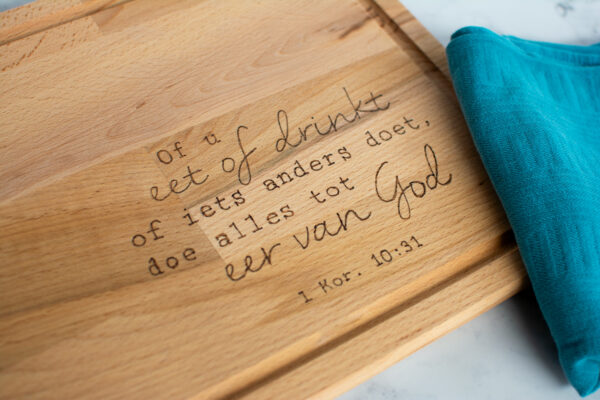 Of u
eet of drinkt
of iets anders doet,
doe alles tot
eer van God
1 Kor. 10:31